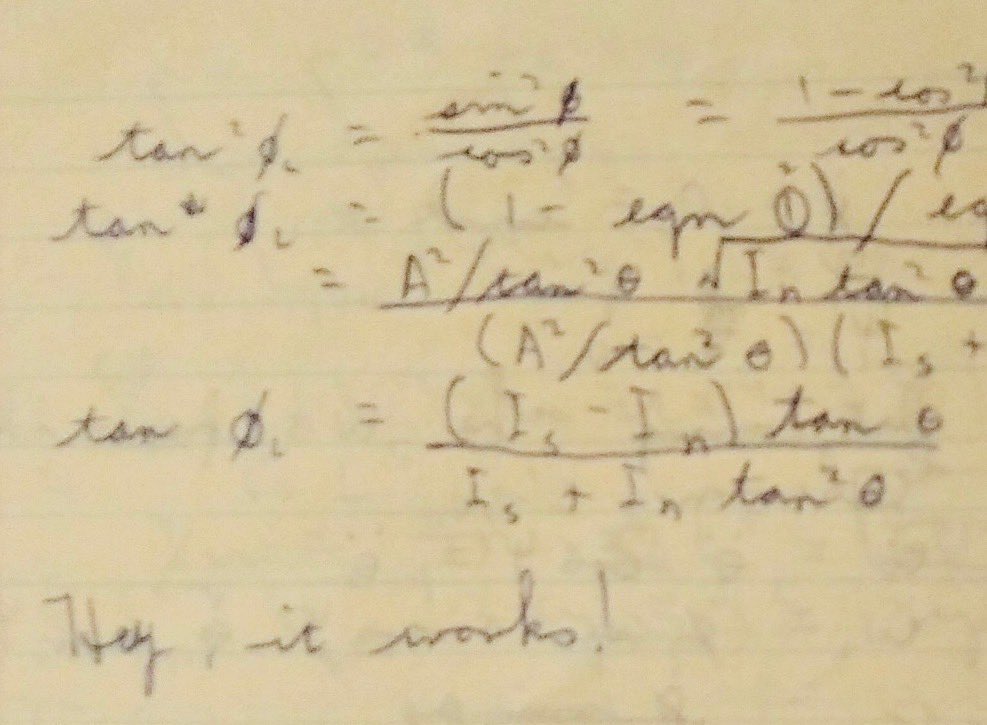 tan² φ. = sin² φ / cos² φ = 1 - cos² / cos² φ
tan φ. = (1 - eqn ①²) /
= A²/tan² θ √ Iₙ tan² θ / (A²/tan² θ)(Iₛ +
tan φ. = (Iₛ - Iₙ) tan θ / Iₛ + Iₙ tan² θ
Hey, it works!